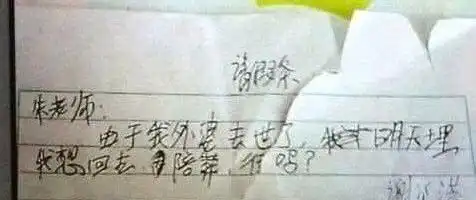 请假条
朱老师:
由于我外婆去世了,我家明天埋
我想回去陪葬,行吗?